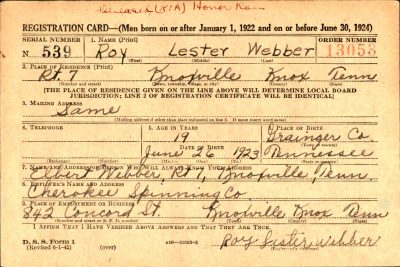 Deceased (KIA) Honor Roll
REGISTRATION CARD—(Men born on or after January 1, 1922 and on or before June 30, 1924)
SERIAL NUMBER 1. NAME (Print) ORDER NUMBER
No. 539 Roy Lester Webber 13053
(First) (Middle) (Last)
2. PLACE OF RESIDENCE (Print)
Rt. 7 Knoxville Knox Tenn
(Number and street) (Town, township, village, or city) (County) (State)
[THE PLACE OF RESIDENCE GIVEN ON THE LINE ABOVE WILL DETERMINE LOCAL BOARD
JURISDICTION; LINE 2 OF REGISTRATION CERTIFICATE WILL BE IDENTICAL]
3. MAILING ADDRESS
Same
(Mailing address if other than place indicated on line 2. If same insert word same)
4. TELEPHONE 5. AGE IN YEARS 6. PLACE OF BIRTH
19 Grainger Co.
DATE OF BIRTH (Town or county)
June 26 1923 Tennessee
(Exchange) (Number) (Mo.) (Day) (Yr.) (State or country)
7. NAME AND ADDRESS OF PERSON WHO WILL ALWAYS KNOW YOUR ADDRESS
Webber, Rt 7, Knoxville, Tenn.
8. EMPLOYER'S NAME AND ADDRESS
Cherokee Spinning Co
9. PLACE OF EMPLOYMENT OR BUSINESS
842 Concord St. Knoxville Knox Tenn
(Number and street or R. F. D. number) (Town) (County) (State)
I AFFIRM THAT I HAVE VERIFIED ABOVE ANSWERS AND THAT THEY ARE TRUE.
D. S. S. Form 1
(Revised 6-1-42) (over) Roy Lester Webber